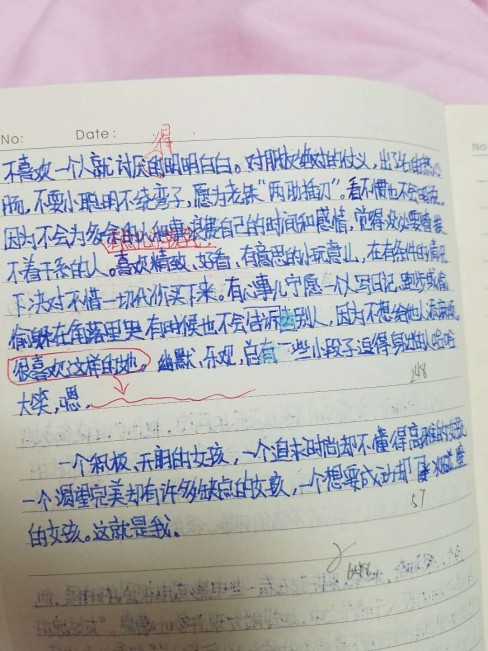 No: Date:
得
不喜欢一个人就讨厌的明明白白。对朋友绝对的仗义,出了名的热心
肠,不耍小聪明不绕弯子,愿为老铁"两肋插刀"。看不惯也不会
因为不会为多余的人和事浪费自己的时间和感情,觉得没必要
不着干系的人。喜欢精致、好看、有意思的小玩意儿,在有条件的情况
下决对不惜一切代价买下来。有心事儿宁愿一个人写日记,跑步或者
偷躲在角落里哭有时候也不会告诉别人,因为不想给他人添麻烦。
很喜欢这样的她。幽默、乐观,总有一些小段子逗得身边的人哈哈
248
大笑,嗯.
一个积极、开朗的女孩,一个追求时尚却不懂得高雅的女孩,
一个渴望完美却有许多缺点的女孩,一个想要成功却
57
的女孩。这就是我.